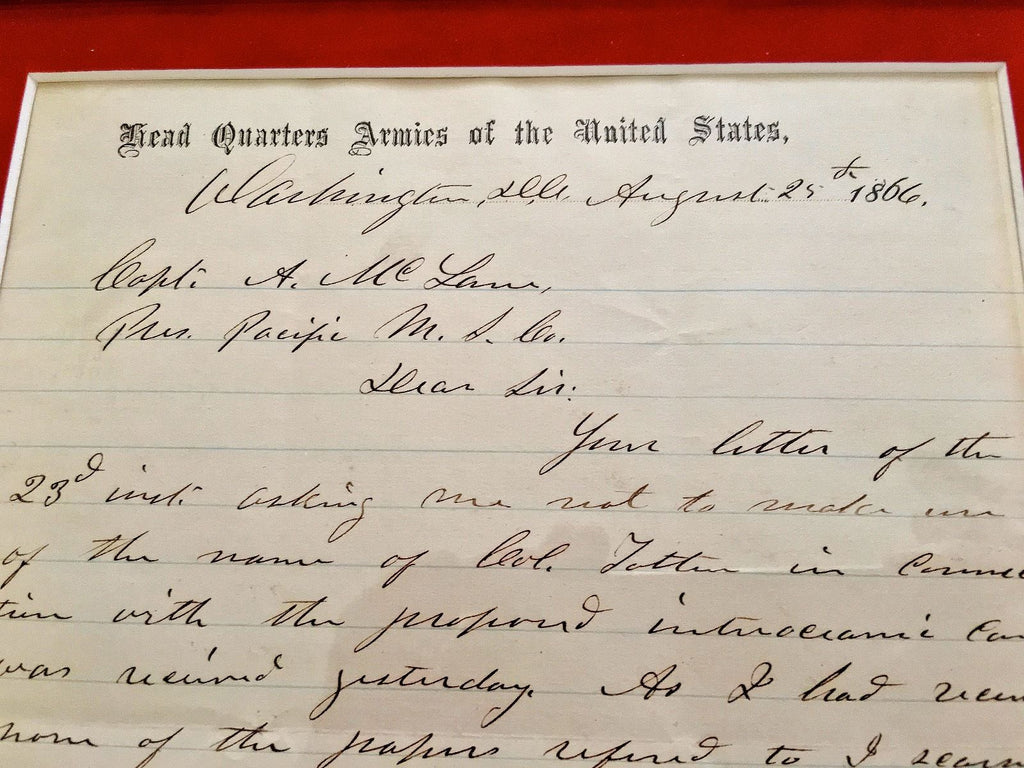 Head Quarters Armies of the United States,
Washington, D.C. August 25th 1866.
Capt. A. McLane,
Pres. Pacific M. S. Co.
Dear Sir:
Your letter of the
23d inst. asking me not to make use
of the name of Col. Totten in connec
tion with the proposed interoceanic Can
was received yesterday. As I had
none of the papers refered to I